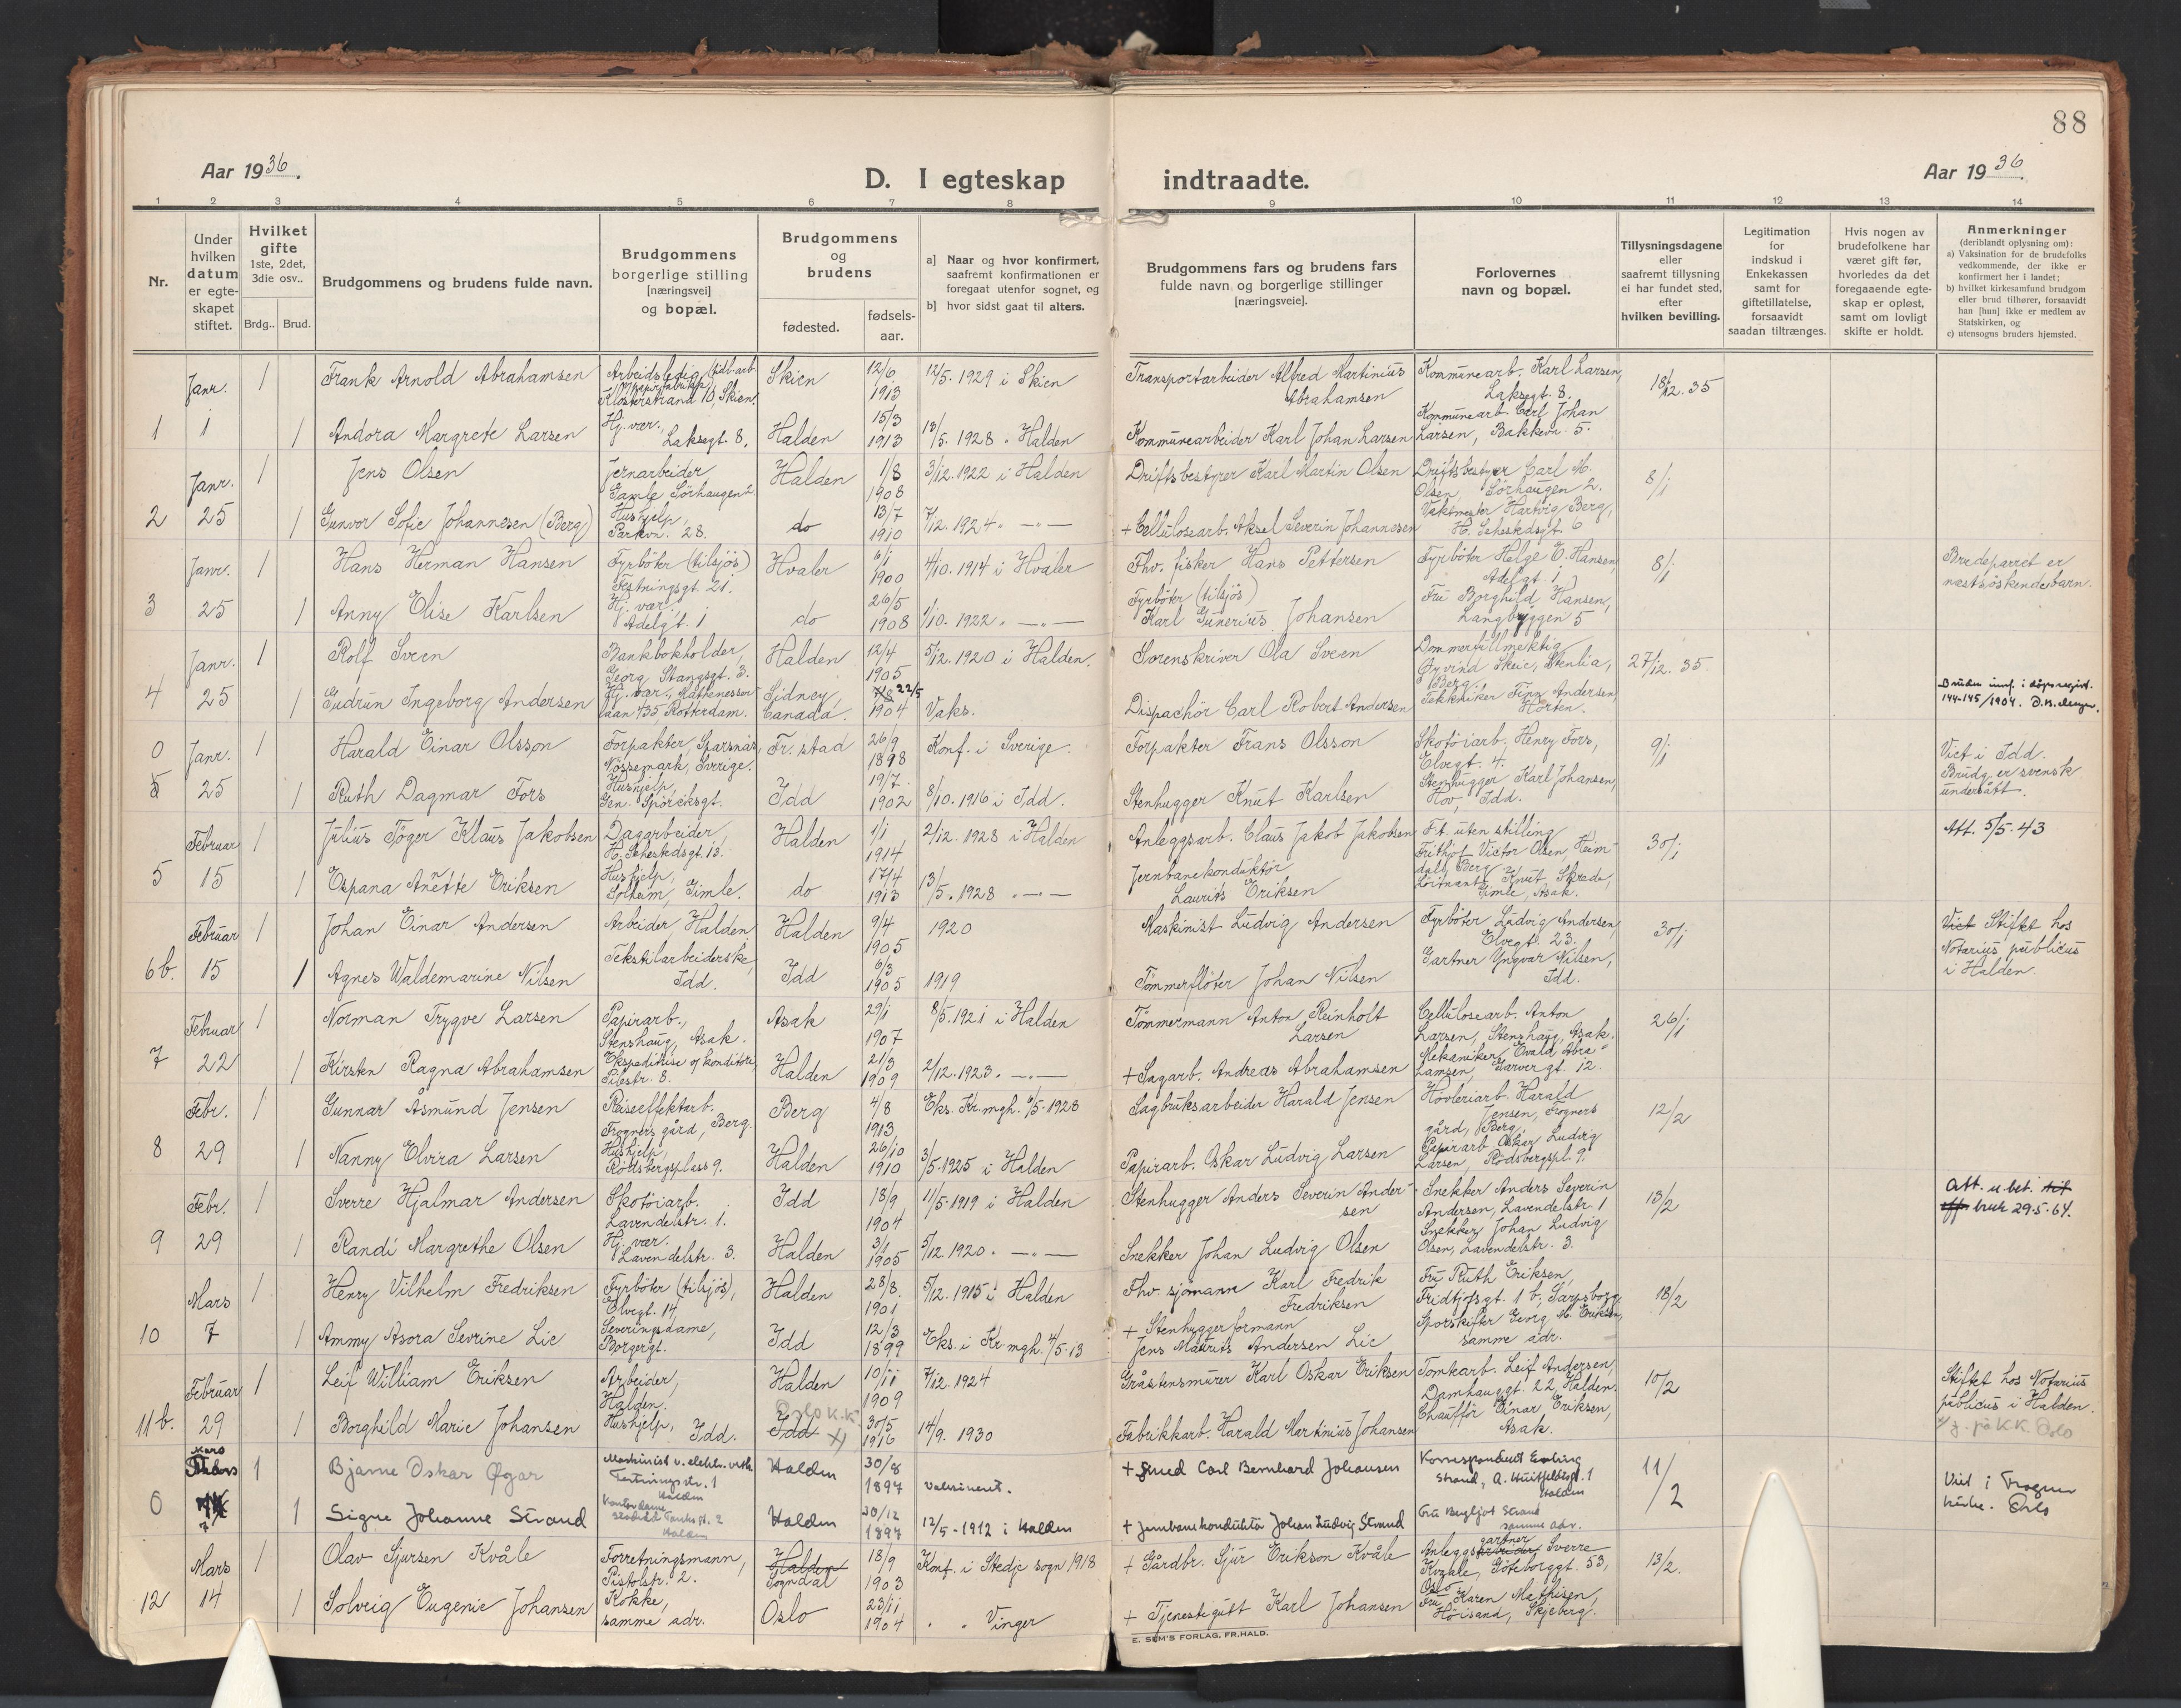 88
Aar 1936.
D. I egteskap indtraadte.
Aar 1936.
1 2 3 4 5 6 7 8 9 10 11 12 13 14
Nr.
Under hvilken datum er egteskapet stiftet.
Hvilket gifte 1ste, 2det, 3die osv..
Brdg.. Brud.
Brudgommens og brudens fulde navn.
Brudgommens borgerlige stilling [næringsvei] og bopæl.
Brudgommens og brudens
fødested.
fødselsaar.
a] Naar og hvor konfirmert, saafremt konfirmationen er foregaat utenfor sognet, og
b] hvor sidst gaat til alters.
Brudgommens fars og brudens fars fulde navn og borgerlige stillinger [næringsveie].
Forlovernes navn og bopæl.
Tillysningsdagene eller saafremt tillysning ei har fundet sted, efter hvilken bevilling.
Legitimation for indskud i Enkekassen samt for giftetillatelse, forsaavidt saadan tiltrænges.
Hvis nogen av brudefolkene har været gift før, hvorledes da det foregaaende egteskap er opløst, samt om lovligt skifte er holdt.
Anmerkninger (deriblandt oplysning om):
a) Vaksination for de brudefolks vedkommende, der ikke er konfirmert her i landet;
b) hvilket kirkesamfund brudgom eller brud tilhører, forsaavidt han [hun] ikke er medlem av Statskirken, og
c) utensogns bruders hjemsted.
Janr. 1 Frank Arnold Abrahamsen Arbeidsledig (tidl. arb. Klosterstrand 10, Skien. Skien 12/6 1913 12/5. 1929 i Skien Transportarbeider Alfred Martinius Abrahamsen Kommunearb. Karl Larsen, Laksegt. 8. 18/12. 35
1 1 1 Andora Margrete Larsen Hj. vær., Laksegt. 8. Halden 15/3 1913 13/5. 1928 " Halden Kommunearbeider Karl Johan Larsen Kommunearb. Carl Johan Larsen, Bakkevn. 5.
Janr. 1 Jens Olsen Jernarbeider Gamle Sørhaugen 2. Halden 1/8 1908 3/12. 1922 i Halden Driftsbestyrer Karl Martin Olsen Driftsbestyrer Carl M. Olsen, Sørhaugen 2. 8/1
2 25 1 Gunvor Sofie Johannesen (Berg) Hushjelp, Parkvn. 28. do 13/7 1910 7/12. 1924 " —"— + Cellulosearb. Aksel Severin Johannesen Vaktmester Hartvig Berg, H. Sehestedsgt. 6
Janr. 1 Hans Herman Hansen Fyrbøter (tilsjøs) Festningsgt. 21. Hvaler 6/1 1900 4/10. 1914 i Hvaler Fhv. fisker Hans Pettersen Fyrbøter Helge E. Hansen, Adelgt. 1 8/1 Brudeparret er næstsøskendebarn.
3 25 1 Anny Elise Karlsen Hj. vær. Adelgt. 1 do 26/5 1908 1/10. 1922 " —"— Fyrbøter (tilsjøs) Karl Gunerius Johansen Fru Borghild Hansen, Langbryggen 5
Janr. 1 Rolf Sveen Bankbokholder, Georg Stangsgt. 3. Halden 12/4 1905 5/12. 1920 i Halden. Sorenskriver Ola Sveen Dommerfullmektig Øyvind Skeie, Stenlia, Berg. 27/12. 35.
4 25 1 Gudrun Ingeborg Andersen Hj. vær., Mathenesserlaan 435 Rotterdam. Sidney, Canada. 22/5 1904 Vaks. Dispachør Carl Robert Andersen Tekkniker Finn Andersen, Horten. Bruden innf. i dåpsregist. 144-145/1904.
0 Janr. 1 Harald Einar Olsson Forpakter, Sparsnäs, Nössemark, Sverige. Fr. stad 26/9 1898 Konf. i Sverige. Forpakter Frans Olsson Skotøiarb. Henry Fors, Elvegt. 4. 9/1 Viet i Idd. Brudg. er svensk undersått.
5 25 1 Ruth Dagmar Fors Hushjelp, Gen. Spørcksgt. Idd 19/7. 1902 8/10. 1916 i Idd. Stenhugger Knut Karlsen Stenhugger Karl Johansen, Hov, Idd.
Februar 1 Julius Tøger Klaus Jakobsen Dagarbeider, H. Sehestedsgt. 13. Halden 1/1 1914 2/12. 1928 i Halden Anleggsarb. Claus Jakob Jakobsen Ft. uten stilling Frithjof Victor Olsen, Heimdal, Berg 30/1 Att. 5/5. 43
5 15 1 Espana Anette Eriksen Hushjelp, Solheim, Gimle. do 17/4 1913 13/5. 1928 —"— Jernbanekonduktør Laurits Eriksen Løitnant Knut Skrada, Gimle, Asak.
Februar 1 Johan Einar Andersen Arbeider Halden Halden 9/4 1905 1920 Maskinist Ludvig Andersen Fyrbøter Ludvig Andersen, Elvegt. 23. 30/1 Viet Stiftet hos Notarius publicus i Halden.
6 b. 15 1 Agnes Waldemarine Nilsen Tekstilarbeiderske, Idd. Idd 6/3 1905 1919 Tømmerfløter Johan Nilsen Gartner Yngvar Nilsen, Idd.
Februar 1 Norman Trygve Larsen Papirarb., Stenshaug, Asak. Asak 29/1 1907 8/5. 1921 i Halden Tømmermann Anton Reinholt Larsen Cellulosearb. Anton Larsen, Stenshaug, Asak. 26/1
7 22 1 Kirsten Ragna Abrahamsen Ekspeditrise og konditori, Pilestr. 8. Halden 21/3 1909 2/12. 1923. —"— + Sagarb. Andreas Abrahamsen Mekaniker Evald Abrahamsen, Garvergt. 12.
Febr. 1 Gunnar Åsmund Jensen Reiseeffektarb. Frogners gård, Berg. Berg 4/8 1913 Eks. Kr. mgh. 6/5. 1928 Sagbruksarbeider Harald Jensen Høvleriarb. Harald Jensen, Frogners gård, Berg. 12/2
8 29 1 Nanny Elvira Larsen Hushjelp, Rødsbergsplass 9. Halden 26/10 1910 3/5. 1925 i Halden Papirarb. Oskar Ludvig Larsen Papirarb. Oskar Ludvig Larsen, Rødsbergspl. 9.
Febr. 1 Sverre Hjalmar Andersen Skotøiarb. Lavendelstr. 1. Idd 18/9 1904 11/5. 1919 i Halden Stenhugger Anders Severin Andersen Snekker Anders Severin Andersen, Lavendelstr. 1 13/2 Att. u. bet. bruk 29.5.64.
9 29 1 Randi Margrethe Olsen Hj. vær. Lavendelstr. 3. Halden 3/1 1905 5/12. 1920 " —"— Snekker Johan Ludvig Olsen Snekker Johan Ludvig Olsen, Lavendelstr. 3.
Mars 1 Henry Vilhelm Fredriksen Fyrbøter (tilsjøs), Elvegt. 14 Halden 28/8. 1901 5/12. 1915 i Halden Fhv. sjømann Karl Fredrik Fredriksen Fru Ruth Eriksen, Fridtjofsgt. 1 b, Sarpsborg 18/2
10 7 1 Ammy Asora Sevrine Lie Severingsdame, Borgergt. Idd 12/3 1899 Eks. i Kr. mgh. 4/5. 13 + Stenhuggerformann Jens Maurits Andersen Lie Sporskifter Georg M. Eriksen, samme adr.
Februar 1 Leif William Eriksen Arbeider, Halden. Halden 10/11 1909 7/12. 1924 Gråstensmurer Karl Oskar Eriksen Tomtearb. Leif Andersen, Damhauggt. 22, Halden. 10/2 Stiftet hos Notarius publicus i Halden.
11 b. 29 1 Borghild Marie Johansen Hushjelp, Idd. Oslo K.K. Idd x) 30/5 1916 14/9. 1930 Fabrikkarb. Harald Martinius Johansen Chauffør Einar Eriksen, Asak. på K.K. Oslo
Mars 1 Bjarne Oskar Øgar Maskinist v. elektr. verk. Festningsstr. 1 Halden Halden 30/8 1897 Vaksinert. + Smed Carl Bernhard Johansen Korrespondent Erling Strand, A. Huitfeldtsgt. 1 Halden 11/2 Viet i Frogner kirke. Oslo
0 7 1 Signe Johanne Strand Kontordame Tanks pl. 2 Halden Halden 30/12 1897 12/5 - 1912 i Halden + Jernbanekonduktør Johan Ludvig Strand Fru Bergljot Strand samme adr.
Mars 1 Olav Sjursen Kvåle Forretningsmann, Pistolstr. 2. Halden Sogndal 18/9 1903 Konf. i Stedje sogn 1918 + Gårdbr. Sjur Erikson Kvåle Anleggsarbeider gartner Sverre Kvaale, Göteborggt. 53, Oslo 13/2.
12 14 1 Solveig Eugenie Johansen Kokke, samme adr. Oslo 23/11 1904 " " Vinger + Tjenestegutt Karl Johansen Fru Karen Mathisen, Høisand, Skjeberg.
E. SEM'S FORLAG, FR.HALD.